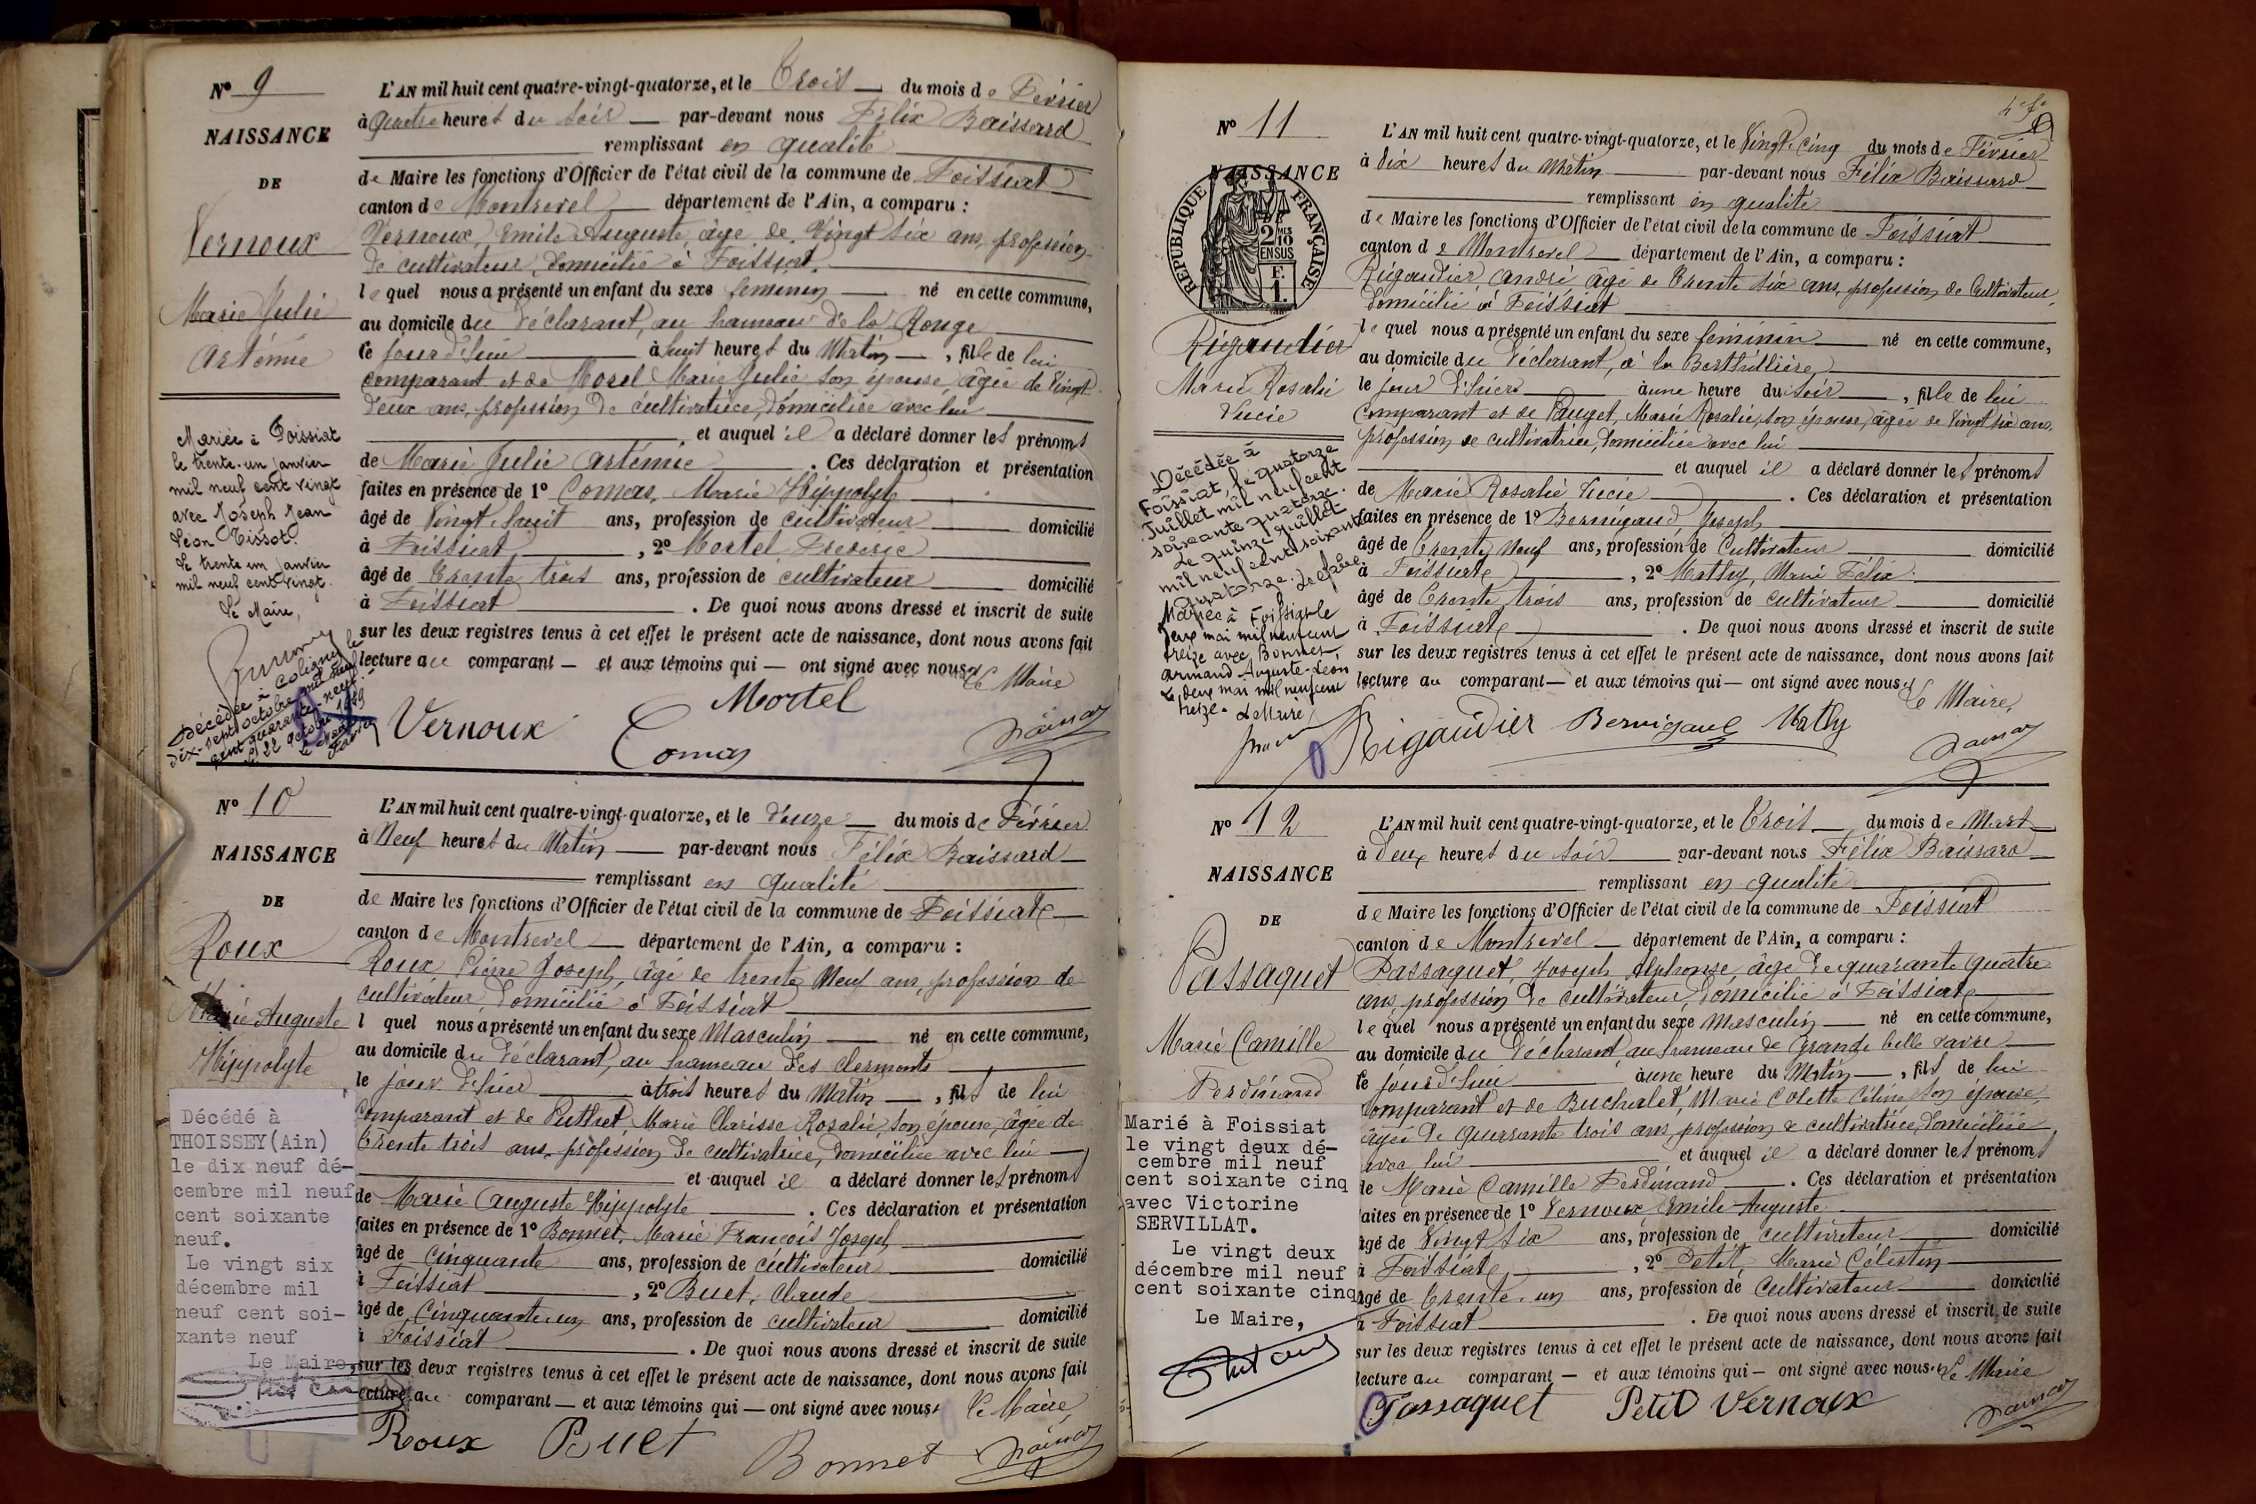 Nº 9
NAISSANCE
DE
Vernoux
Marie Julie
Artémie
Mariée à Foissiat
le trente-un janvier
mil neuf cent vingt
avec Joseph Jean
Léon Tissot.
Le trente un janvier
mil neuf cent vingt.
Le Maire,
Décédée à Coligny le
dix-sept octobre mil neuf
cent quarante-neuf.
le 22 octobre 1949
L'AN mil huit cent quatre-vingt-quatorze, et le Trois du mois de Février
à Quatre heures du soir par-devant nous Félix Baissard
remplissant en qualité
de Maire les fonctions d'Officier de l'état civil de la commune de Foissiat
canton de Montrevel département de l'Ain, a comparu :
Vernoux, Emile Auguste, âgé de Vingt six ans, profession
de cultivateur, domicilié à Foissiat.
lequel nous a présenté un enfant du sexe féminin né en cette commune,
au domicile du déclarant, au hameau de la Rouge
le jour d'hui à huit heures du Matin, fille de lui
comparant et de Morel Marie Julie son épouse, âgée de Vingt
deux ans, profession de cultivatrice, domiciliée avec lui
et auquel il a déclaré donner les prénoms
de Marie Julie Artémie. Ces déclaration et présentation
faites en présence de 1º Comas, Marie Hippolyte
âgé de Vingt huit ans, profession de cultivateur domicilié
à Foissiat, 2º Mortel Frédéric
âgé de Trente trois ans, profession de cultivateur domicilié
à Foissiat. De quoi nous avons dressé et inscrit de suite
sur les deux registres tenus à cet effet le présent acte de naissance, dont nous avons fait
lecture au comparant et aux témoins qui ont signé avec nous.
Le Maire
Mortel
Vernoux
Comas
Nº 10
NAISSANCE
DE
Roux
Marie Auguste
Hippolyte
Décédé à
THOISSEY(Ain)
le dix neuf dé-
cembre mil neuf
cent soixante
neuf.
Le vingt six
décembre mil
neuf cent soi-
xante neuf
Le Maire,
L'AN mil huit cent quatre-vingt-quatorze, et le douze du mois de Février
à Neuf heures du Matin par-devant nous Félix Baissard
remplissant en qualité
de Maire les fonctions d'Officier de l'état civil de la commune de Foissiat
canton de Montrevel département de l'Ain, a comparu :
Roux, Pierre Joseph, âgé de trente Neuf ans, profession de
cultivateur domicilié à Foissiat
l quel nous a présenté un enfant du sexe Masculin né en cette commune,
au domicile du déclarant, au hameau des Clermonts
le jour d'hier à trois heures du Matin, fils de lui
comparant et de Puthet, Marie Clarisse Rosalie, son épouse, âgée de
Trente trois ans, profession de cultivatrice, domiciliée avec lui
et auquel il a déclaré donner les prénoms
de Marie Auguste Hippolyte. Ces déclaration et présentation
faites en présence de 1º Bonnet, Marie François Joseph
âgé de Cinquante ans, profession de cultivateur domicilié
à Foissiat, 2º Buet, Claude
âgé de Cinquante-un ans, profession de cultivateur domicilié
à Foissiat. De quoi nous avons dressé et inscrit de suite
sur les deux registres tenus à cet effet le présent acte de naissance, dont nous avons fait
lecture au comparant et aux témoins qui ont signé avec nous.
Le Maire
Roux Buet Bonnet
Nº 11
NAISSANCE
RÉPUBLIQUE FRANÇAISE
2 10MES
EN SUS
F.
1.
Rigaudier
Marie Rosalie
Lucie
Décédée à
Foissiat, le quatorze
Juillet mil neuf cent
soixante quatorze.
Le quinze juillet
mil neuf cent soixante
quatorze.
Mariée à Foissiat le
deux mai mil neuf cent
treize avec Bonnet,
Armand-Auguste-Léon
Le deux mai mil neuf cent
treize.
Le Maire,
L'AN mil huit cent quatre-vingt-quatorze, et le Vingt Cinq du mois de Février
à Dix heures du Matin par-devant nous Félix Baissard
remplissant en qualité
de Maire les fonctions d'Officier de l'état civil de la commune de Foissiat
canton de Montrevel département de l'Ain, a comparu :
Rigaudier André, âgé de Trente six ans, profession de Cultivateur,
domicilié à Foissiat
lequel nous a présenté un enfant du sexe féminin né en cette commune,
au domicile du déclarant, à la Berthillière
le jour d'hier à une heure du soir, fille de lui
comparant et de Pauget, Marie Rosalie, son épouse, âgée de Vingt six ans,
profession de cultivatrice, domiciliée avec lui
et auquel il a déclaré donner les prénoms
de Marie Rosalie Lucie. Ces déclaration et présentation
faites en présence de 1º Bernigaud, Joseph
âgé de Trente Neuf ans, profession de Cultivateur domicilié
à Foissiat, 2º Mathy, Marie Félix
âgé de Trente trois ans, profession de cultivateur domicilié
à Foissiat. De quoi nous avons dressé et inscrit de suite
sur les deux registres tenus à cet effet le présent acte de naissance, dont nous avons fait
lecture au comparant et aux témoins qui ont signé avec nous.
Le Maire,
Rigaudier Bernigaud Mathy
Nº 12
NAISSANCE
DE
Passaquet
Marie Camille
Ferdinand
Marié à Foissiat
le vingt deux dé-
cembre mil neuf
cent soixante cinq
avec Victorine
SERVILLAT.
Le vingt deux
décembre mil neuf
cent soixante cinq
Le Maire,
L'AN mil huit cent quatre-vingt-quatorze, et le Trois du mois de Mars
à Deux heures du soir par-devant nous Félix Baissard
remplissant en qualité
de Maire les fonctions d'Officier de l'état civil de la commune de Foissiat
canton de Montrevel département de l'Ain, a comparu :
Passaquet, Joseph Alphonse, âgé de quarante quatre
ans, profession de cultivateur, domicilié à Foissiat
lequel nous a présenté un enfant du sexe Masculin né en cette commune,
au domicile du déclarant, au hameau de Grande belle vavre
le jour d'hui à une heure du Matin, fils de lui
comparant et de Buchalet, Marie Colette Céline son épouse,
âgée de quarante trois ans, profession de cultivatrice, domiciliée
avec lui et auquel il a déclaré donner les prénoms
de Marie Camille Ferdinand. Ces déclaration et présentation
faites en présence de 1º Vernoux Emile Auguste
âgé de Vingt six ans, profession de cultivateur domicilié
à Foissiat, 2º Petit, Marie Célestin
âgé de Trente-un ans, profession de Cultivateur domicilié
à Foissiat. De quoi nous avons dressé et inscrit de suite
sur les deux registres tenus à cet effet le présent acte de naissance, dont nous avons fait
lecture au comparant et aux témoins qui ont signé avec nous.
Le Maire
Passaquet Petit Vernoux